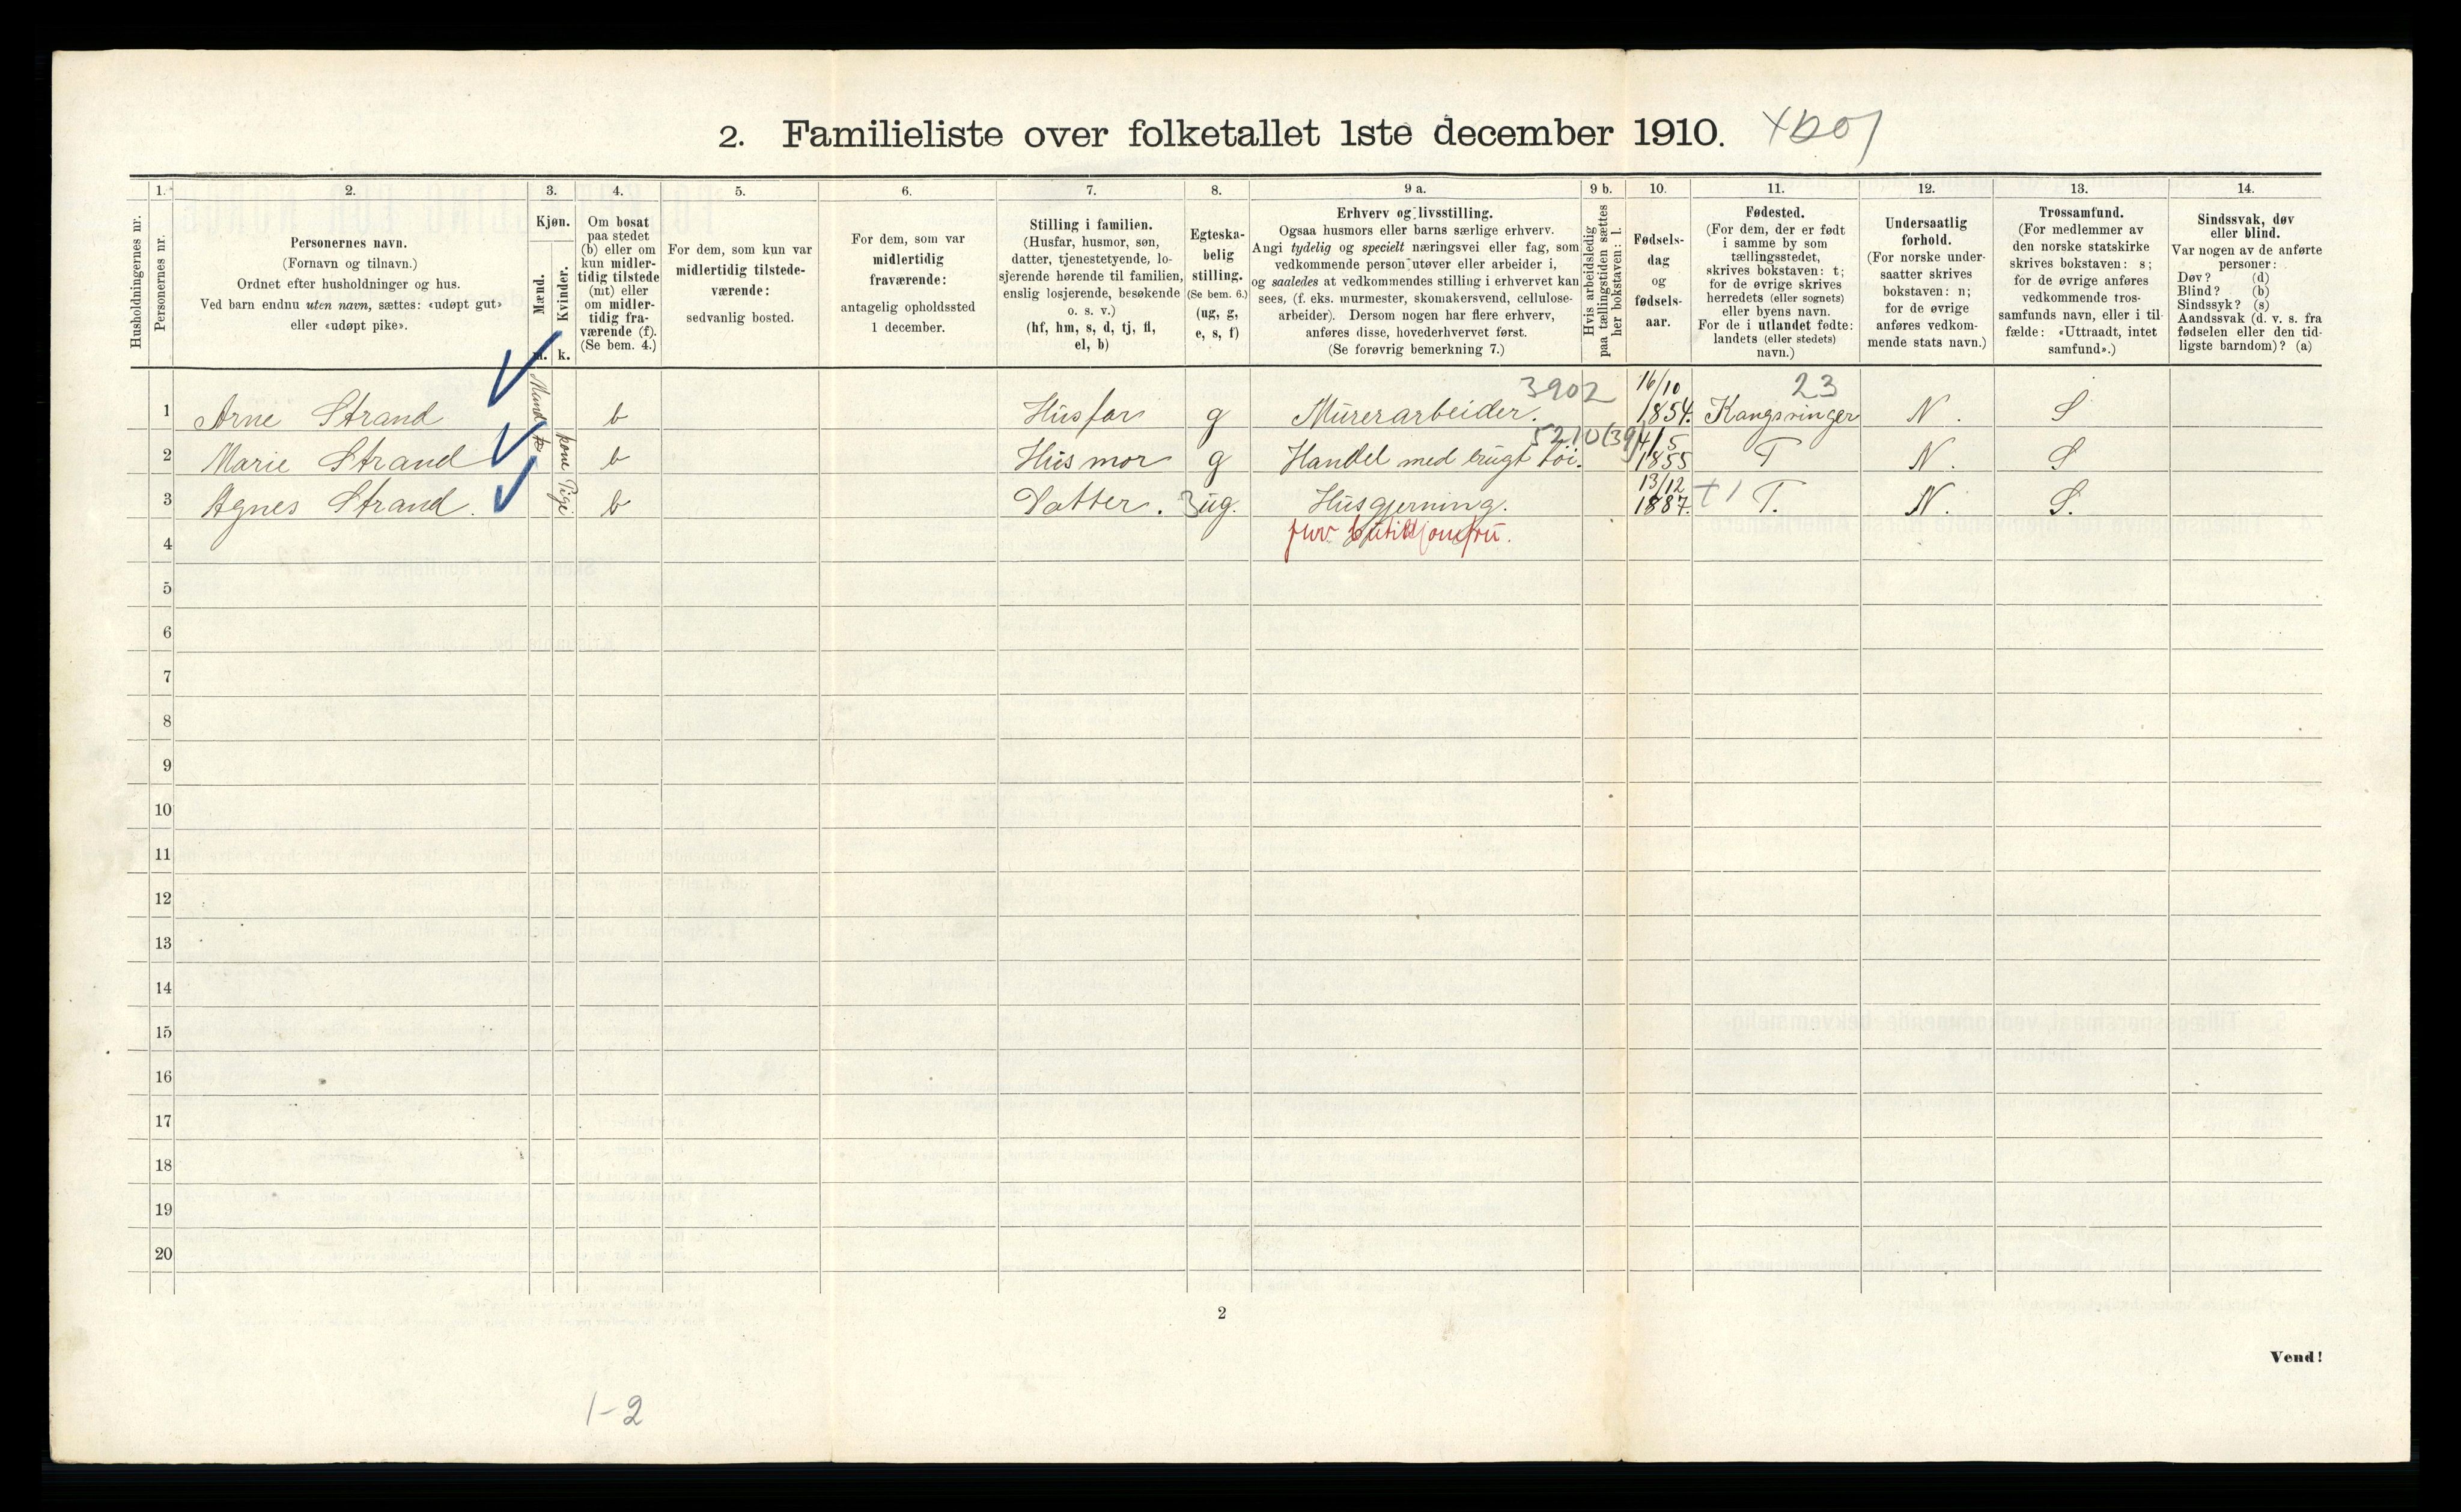 2. Familieliste over folketallet 1ste december 1910.
1. 2. 3. 4. 5. 6. 7. 8. 9 a. 9 b. 10. 11. 12. 13. 14.
Husholdningernes nr.
Personernes nr.
Personernes navn.
(Fornavn og tilnavn.)
Ordnet efter husholdninger og hus.
Ved barn endnu uten navn, sættes: «udøpt gut»
eller «udøpt pike».
Kjøn.
Mænd.
Kvinder.
m. k.
Om bosat
paa stedet
(b) eller om
kun midler-
tidig tilstede
(mt) eller
om midler-
tidig fra-
værende (f).
(Se bem. 4.)
For dem, som kun var
midlertidig tilstede-
værende:
sedvanlig bosted.
For dem, som var
midlertidig
fraværende:
antagelig opholdssted
1 december.
Stilling i familien.
(Husfar, husmor, søn,
datter, tjenestetyende, lo-
sjerende hørende til familien,
enslig losjerende, besøkende
o. s. v.)
(hf, hm, s, d, tj, fl,
el, b)
Egteska-
belig
stilling.
(Se bem. 6.)
(ug, g,
e, s, f)
Erhverv og livsstilling.
Ogsaa husmors eller barns særlige erhverv.
Angi tydelig og specielt næringsvei eller fag, som
vedkommende person utøver eller arbeider i,
og saaledes at vedkommendes stilling i erhvervet kan
sees, (f. eks. murmester, skomakersvend, cellulose-
arbeider). Dersom nogen har flere erhverv,
anføres disse, hovederhvervet først.
(Se forøvrig bemerkning 7.)
Hvis arbeidsledig
paa tællingstiden sættes
her bokstaven: l.
Fødsels-
dag
og
fødsels-
aar.
Fødested.
(For dem, der er født
i samme by som
tællingsstedet,
skrives bokstaven: t;
for de øvrige skrives
herredets (eller sognets)
eller byens navn.
For de i utlandet fødte:
landets (eller stedets)
navn.)
Undersaatlig
forhold.
(For norske under-
saatter skrives
bokstaven: n;
for de øvrige
anføres vedkom-
mende stats navn.)
Trossamfund.
(For medlemmer av
den norske statskirke
skrives bokstaven: s;
for de øvrige anføres
vedkommende tros-
samfunds navn, eller i til-
fælde: «Uttraadt, intet
samfund».)
Sindssvak, døv
eller blind.
Var nogen av de anførte
personer:
Døv? (d)
Blind? (b)
Sindssyk? (s)
Aandssvak (d. v. s. fra
fødselen eller den tid-
ligste barndom)? (a)
3902 16/10 23
1 Arne Strand Mand b Husfar g Murerarbeider. 1854. Kangsvinger N. S
5210 (39) 4/5
2 Marie Strand kone b Husmor g Handel med brugt tøi. 1855 T N. S
13/12
3 Agnes Strand. Pige b Datter. 3 ug. Husgjerning. 1887. +1 T. N. S.
4
5
6
7
8
9
10
11
12
13
14
15
16
17
18
19
20
2
Vend!
1-2